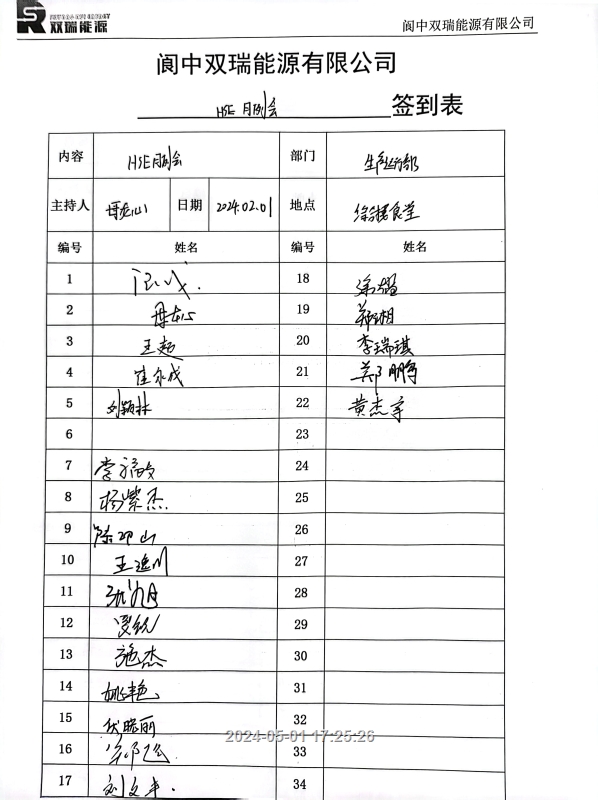 双瑞能源
阆中双瑞能源有限公司
阆中双瑞能源有限公司
HSE 月例会 签到表
内容 HSE月例会 部门 生产运行部
主持人 母龙山 日期 2024.02.01 地点 综合楼食堂
编号 姓名 编号 姓名
1 18
2 19 郑湘
3 王超 20 李瑞琪
4 崔永成 21 郑鹏
5 刘颖林 22 黄杰宇
6 23
7 李福友 24
8 杨紫杰 25
9 陈邛山 26
10 王逸川 27
11 张旭 28
12 29
13 施杰 30
14 姚艳 31
15 伏晓丽 32
2024-05-01 17:25:26
16 33
17 刘文丰 34